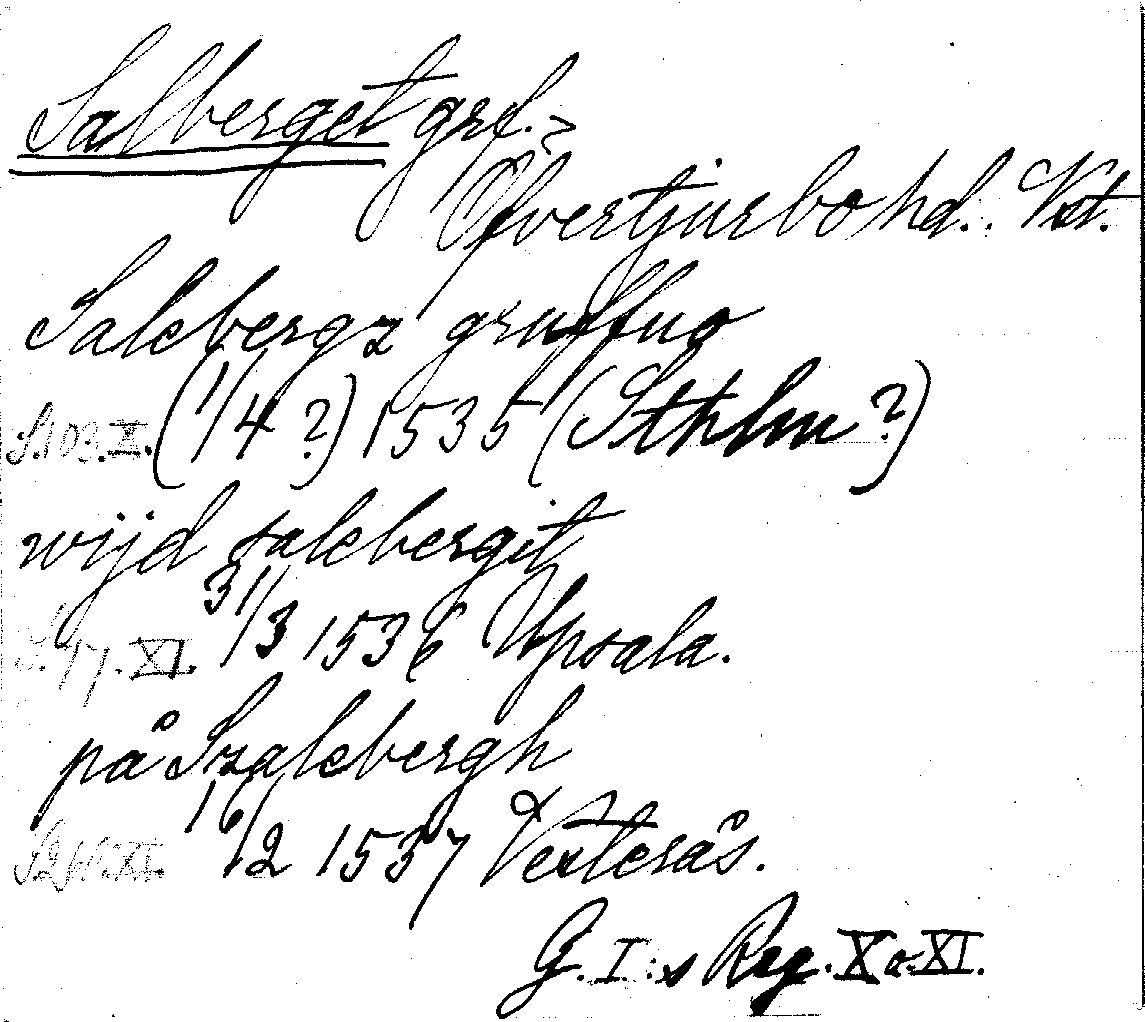 Salberget grf.
Öfvertjurbo hd. Vst.
Salebergz gruffuo
S. 103. X. (1/4 ?) 1535 (Sthlm ?)
wijd salebergit
S. 17. XI. 31/3 1536 Upsala.
på Szalebergh
16/2 1537 Vesterås.
G. I:s Reg. X o. XI.